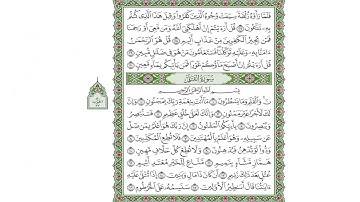 فَلَمَّا رَأَوْهُ زُلْفَةً سِيئَتْ وُجُوهُ الَّذِينَ كَفَرُوا وَقِيلَ هَٰذَا الَّذِي كُنتُم
بِهِ تَدَّعُونَ ٢٧ قُلْ أَرَءَيْتُمْ إِنْ أَهْلَكَنِيَ اللَّهُ وَمَن مَّعِيَ أَوْ رَحِمَنَا
فَمَن يُجِيرُ الْكَٰفِرِينَ مِنْ عَذَابٍ أَلِيمٍ ٢٨ قُلْ هُوَ الرَّحْمَٰنُ
ءَامَنَّا بِهِ وَعَلَيْهِ تَوَكَّلْنَا فَسَتَعْلَمُونَ مَنْ هُوَ فِي ضَلَٰلٍ مُّبِينٍ ٢٩
قُلْ أَرَءَيْتُمْ إِنْ أَصْبَحَ مَاؤُكُمْ غَوْرًا فَمَن يَأْتِيكُم بِمَاءٍ مَّعِينٍ ٣٠
سُورَةُ القَلَمِ
بِسْمِ اللَّهِ الرَّحْمَٰنِ الرَّحِيمِ
نٓ وَالْقَلَمِ وَمَا يَسْطُرُونَ ١ مَا أَنتَ بِنِعْمَةِ رَبِّكَ بِمَجْنُونٍ ٢ وَإِنَّ
لَكَ لَأَجْرًا غَيْرَ مَمْنُونٍ ٣ وَإِنَّكَ لَعَلَىٰ خُلُقٍ عَظِيمٍ ٤ فَسَتُبْصِرُ
وَيُبْصِرُونَ ٥ بِأَييِّكُمُ الْمَفْتُونُ ٦ إِنَّ رَبَّكَ هُوَ أَعْلَمُ بِمَن ضَلَّ
عَن سَبِيلِهِ وَهُوَ أَعْلَمُ بِالْمُهْتَدِينَ ٧ فَلَا تُطِعِ الْمُكَذِّبِينَ ٨
وَدُّوا لَوْ تُدْهِنُ فَيُدْهِنُونَ ٩ وَلَا تُطِعْ كُلَّ حَلَّافٍ مَّهِينٍ ١٠
هَمَّازٍ مَّشَّاءٍ بِنَمِيمٍ ١١ مَّنَّاعٍ لِّلْخَيْرِ مُعْتَدٍ أَثِيمٍ ١٢
عُتُلٍّ بَعْدَ ذَٰلِكَ زَنِيمٍ ١٣ أَن كَانَ ذَا مَالٍ وَبَنِينَ ١٤ إِذَا تُتْلَىٰ عَلَيْهِ
ءَايَٰتُنَا قَالَ أَسَٰطِيرُ الْأَوَّلِينَ ١٥ سَنَسِمُهُ عَلَى الْخُرْطُومِ ١٦